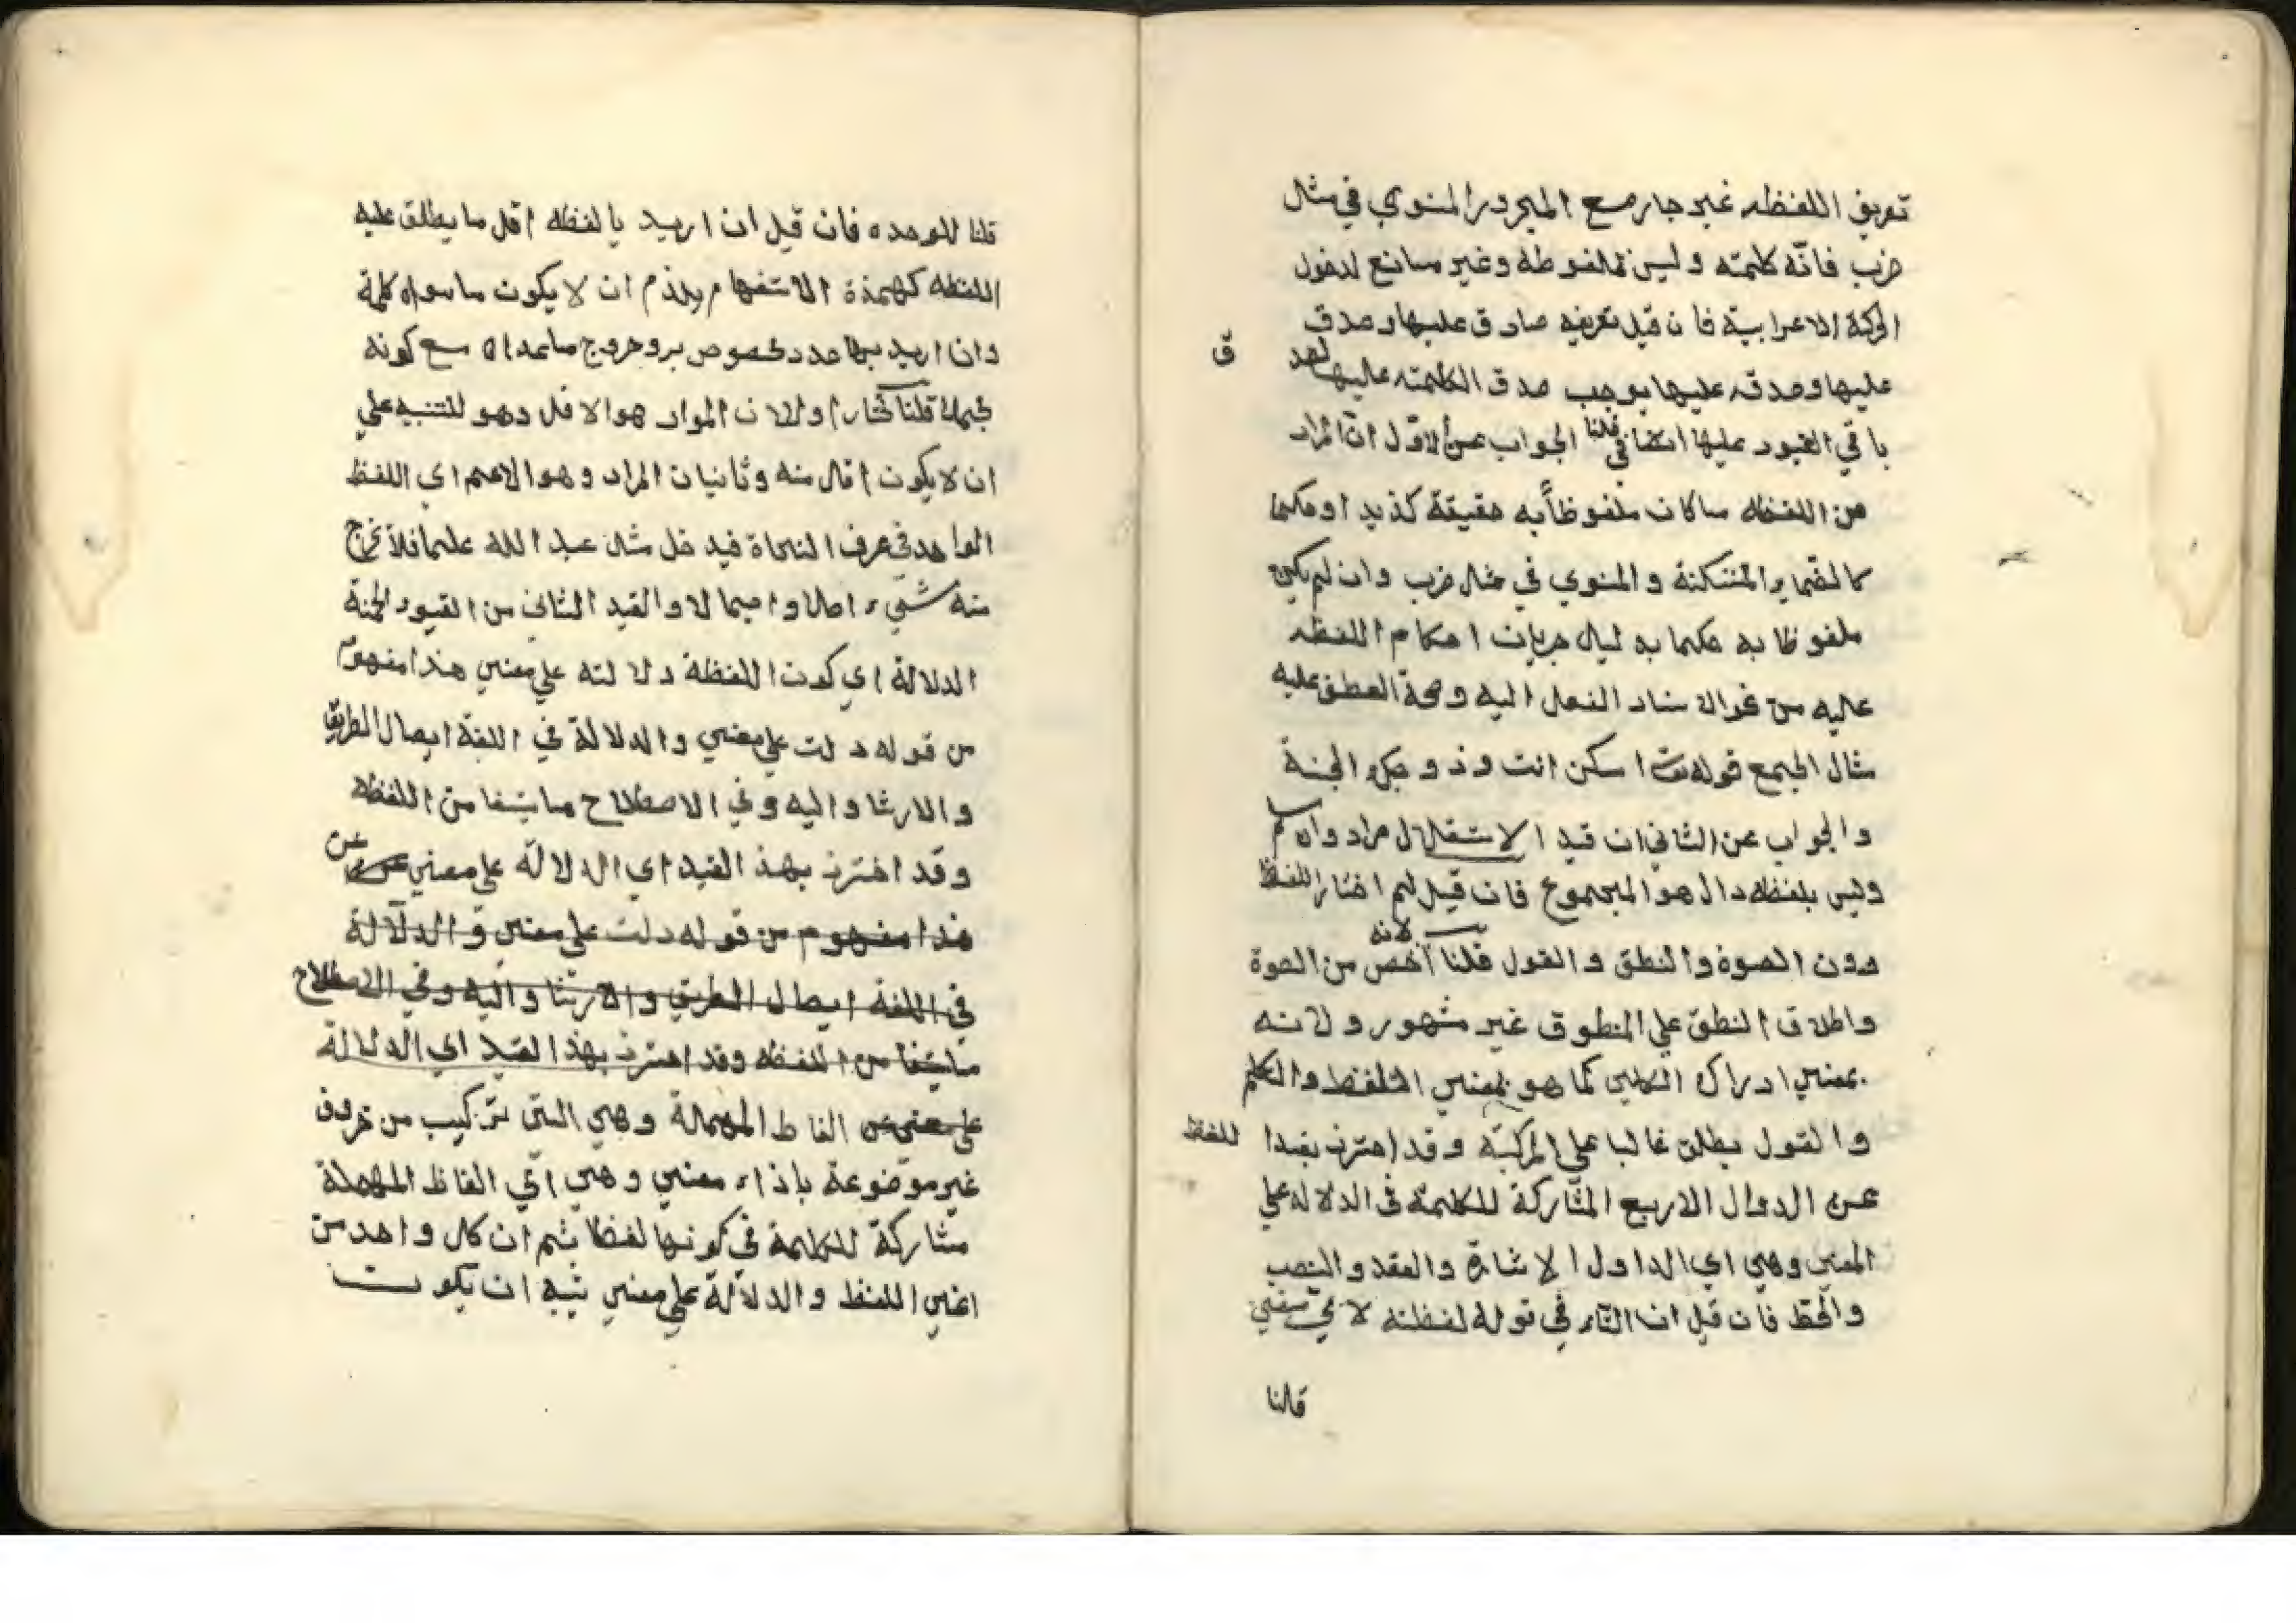 تعريف اللفظه غير جار مع المجرور المنوي في مثال
ضرب فانّه كلمته وليس تمالفوظه وغير مانع لدخول
الحركة الاعرابية فان قيل تعريفه صادق عليها وصدق
عليها وصدقه عليها يوجب صدق الكلمته عليها لصد
ق
باقي القيود عليها ايضا قلنا الجواب عن الاوّل انّ المراد
من اللفظه ما كان ملفوظاً به حقيقة كذيد او حكما
كالضماير المتنكنة والمنوي في مثال ضرب وان لم يكن
ملفوظا به حكما به ليال جريان احكام اللفظه
عليه من نحو الاسناد الفعل اليه وصحة العطف عليه
مثال الجمع قوله تعا اسكن انت وذوجك الجنة
والجواب عن الثاني ان قيد الاستقلال مراد وان لم
وليس بلفظه دال هو المجموع فان قيل لم اختار اللفظ
دون الصوة والنطق والقول قلنا لانه أخص من الصوة
واطلاق النطق علي المنطوق غير مشهور ولانه
بمعني ادراك الكلي كما هو بمعني التلفظ والتكلم
والقول يطلق غالبا علي المركبّه وقد احترز بقيدا
للفظ
عن الدوال الاربع المشاركة للكلمة في الدلاله علي
المعني وهي اي الداول الاشارة والعقد والنصب
والخط فان قيل ان التاء في قوله لفظته لا يّ معني
قلنا
قلنا للوحده فان قيل ان اريد بالفظه اقل ما يطلق عليه
اللفظه كهمذة الاستفهام يلذم ان لا يكون ما سواه كلمة
وان اريد بها عدد مخصوص بر وخروج ما عداه مع كونه
كلمة قلنا نختار اولا ان المواد هو الاقل وهو للتنبيه علي
ان لا يكون اقال منه وثانيا ان المراد وهو الاعم اي اللفظ
الواحد في عرف النحاة فيدخل مثال عبد الله علما فلا نخرج
منه شيء اصالا واجمالا والقيد الثاني من القيود الخمة
الدلالة اي كون اللفظة دلالته علي معني هذا مفهوم
من قوله دلت علي معني والدلالة في اللغة ايصال الطريق
والارشاد اليه وفي الاصطلاح ما يشفا من اللفظه
وقد احترز بهذ القيد اي الدلالة علي معني عن
هذا مفهوم من قوله دلت علي معني والدلالة
في اللغة ايصال الطريق والارشاد اليه وفي الاصطلاح
ما يشفا من اللفظه وقد احترز بهذا القيد اي الدلالة
علي معني عن الفاظ المهمالة وهي التي تركيب من حروف
غير موضوعة باذاء معني وهي اي الفاظ المهملة
مشاركة للكلمة في كونها لفظا ثم ان كل واحد من
اعني اللفظ والدلالة علي معني يشبه ان يكون